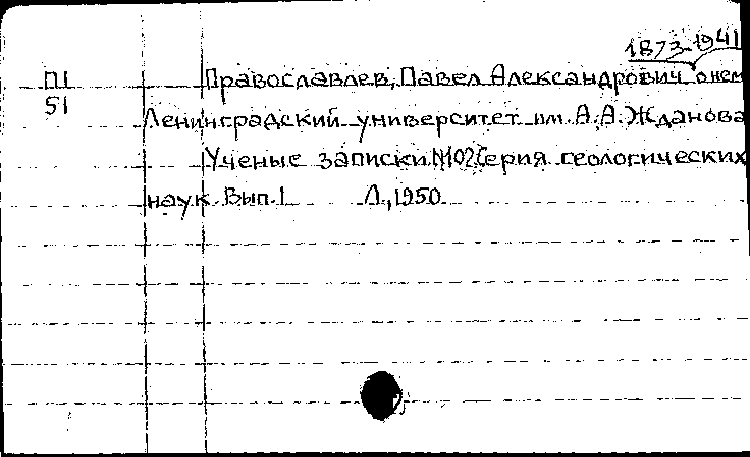 1873-1941
П1 Православлев, Павел Александрович о нем
51 Ленинградский университет им. А.А. Жданова
Ученые записки №102 Серия геологических
наук Вып.1 Л., 1950